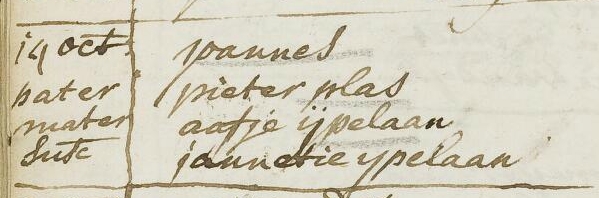 14 oct. joannes
pater pieter plas
mater aafje ijpelaan
Susc jannetie ypelaan